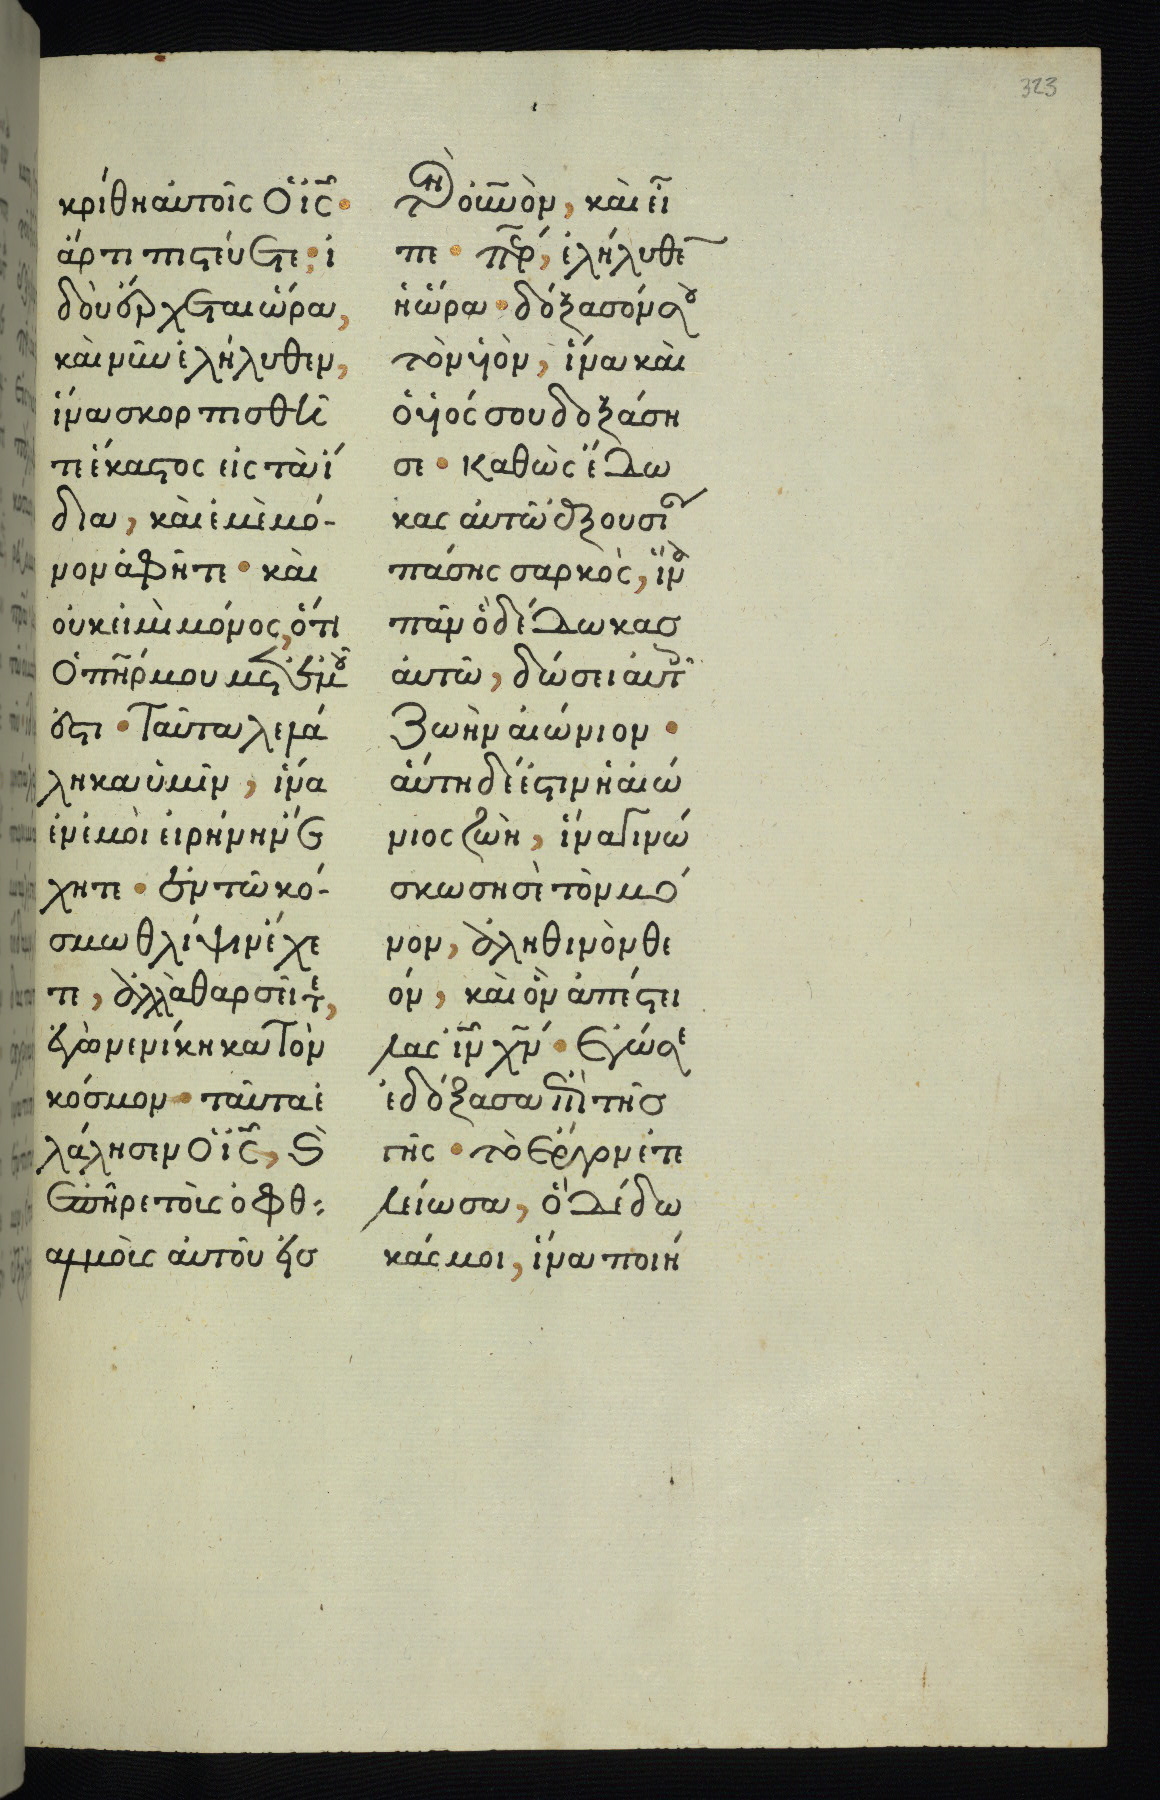 323
κρίθη αὐτοῖς ὁ ἰς̄ ·
ἄρτι πιστεύετε; ἰ
δοὺ ἔρχεται ὥρα,
καὶ νῦν ἐλήλυθεν,
ἵνα σκορπισθῆ
τε ἕκαστος εἰς τὰ ἴ
δια, καὶ ἐμὲ μό-
νον ἀφῆτε · καὶ
οὐκ εἰμὶ μόνος, ὅτι
ὁ πη̄ρ μου μετ ἐμοῦ
ἐστι · Ταῦτα λελά
ληκα ὑμῖν, ἵνα
ἐν ἐμοὶ εἰρήνην ἔ
χητε · ἐν τῶ κό-
σμω θλίψιν ἔχε
τε, ἀλλὰ θαρσεῖτε,
ἐγὼ νενίκηκα τὸν
κόσμον · ταῦτα ἐ
λάλησεν ὁ ἰς̄, καὶ
ἐπῆρε τοὺς ὀφθ
αλμοὺς αὐτοῦ εἰσ
τὸν οὐν̄ὸν, καὶ εἶ
πε · πε̄ρ, ἐλήλυθεν
ἡ ὥρα · δόξασόν σου
τὸν ὑὸν, ἵνα καὶ
ὁ ὑός σου δοξάση
σε · καθὼς ἔδω
κας αὐτῶ ἐξουσίαν
πάσης σαρκὸς, ἵνα
πᾶν ὃ δέδωκασ
αὐτῶ, δώσει αὐτοῖς
ζωὴν αἰώνιον ·
αὕτη δέ ἐστιν ἡ αἰώ
νιος ζωὴ, ἵνα γινώ
σκωσι σὲ τὸν μό
νον, ἀληθινὸν θε
όν, καὶ ὃν ἀπέστει
λας ἰν̄ χν̄ · Ἐγώ σε
ἐδόξασα ἐπὶ τῆσ
γῆς · τὸ ἔργον ἐτε
λείωσα, ὃ δέδω
κάς μοι, ἵνα ποιή